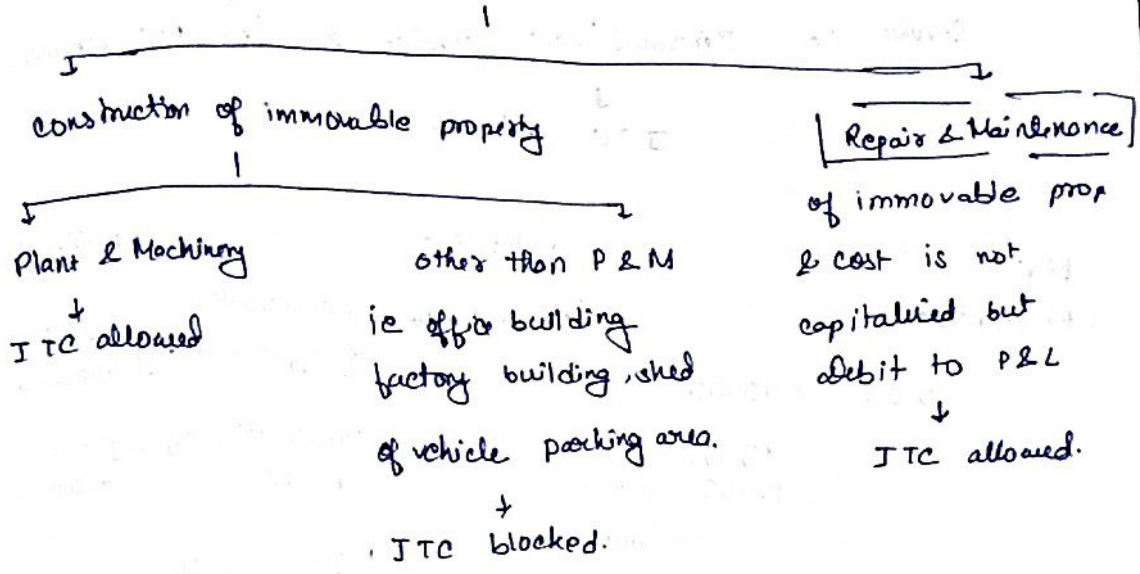 construction of immovable property
Plant & Machinery
↓
ITC allowed
other than P & M
ie office building
factory building, shed
of vehicle parking area.
↓
ITC blocked.
Repair & Maintenance
of immovable prop
& cost is not
capitalised but
debit to P&L
↓
ITC allowed.